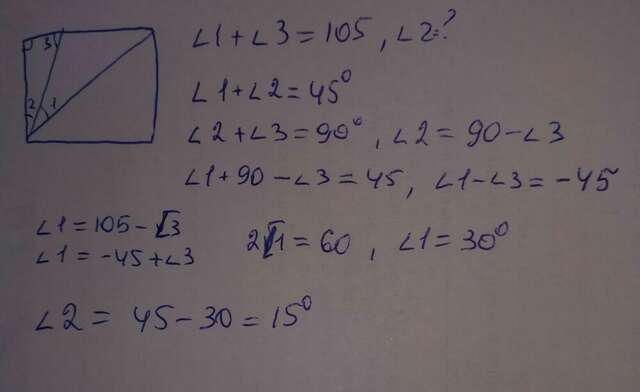 3
2 1
∠1 + ∠3 = 105 , ∠2 = ?
∠1 + ∠2 = 45°
∠2 + ∠3 = 90° , ∠2 = 90 - ∠3
∠1 + 90 - ∠3 = 45 , ∠1 - ∠3 = -45
∠1 = 105 - ∠3
∠1 = -45 + ∠3
2∠1 = 60 , ∠1 = 30°
∠2 = 45 - 30 = 15°